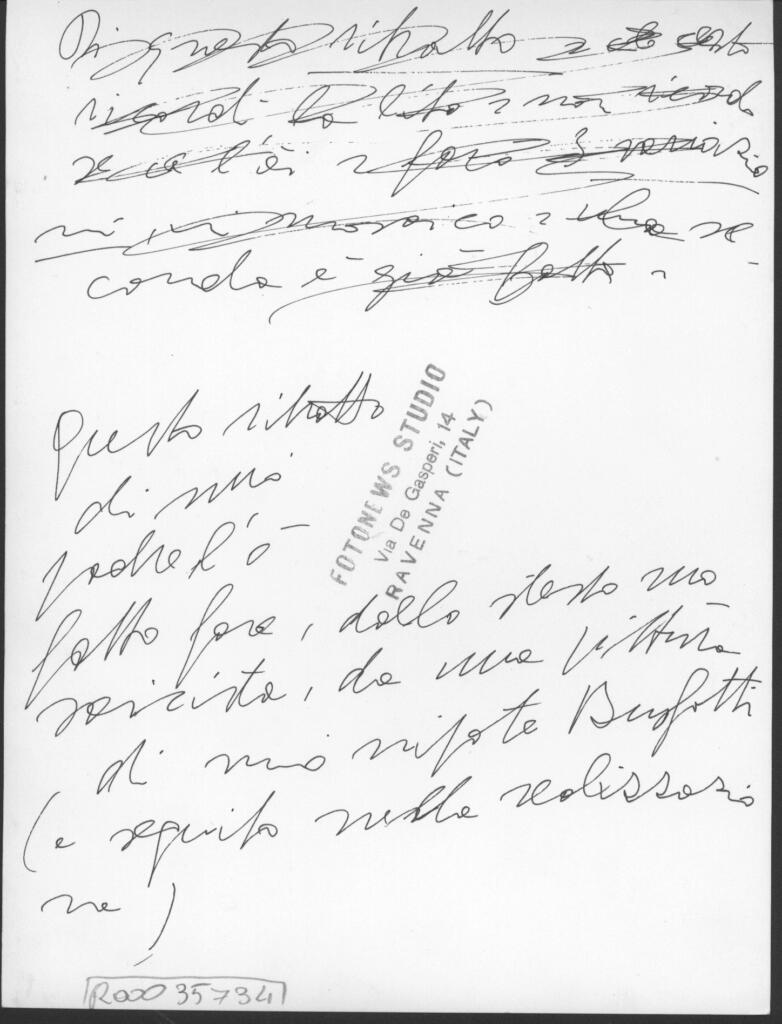 Di questo ritratto
ricordi la non ricordo
farò 3 versio
ni in mosaico : Una se-
conda è già fatta.
Questo ritratto
di mio
padre l'ò
fatto fare, dallo stesso mo
saicista, da una pittura
di mio nipote Bussotti
(e seguito nella realizzazio
ne)
FOTONEWS STUDIO
Via De Gasperi, 14
RAVENNA (ITALY)
R00035734